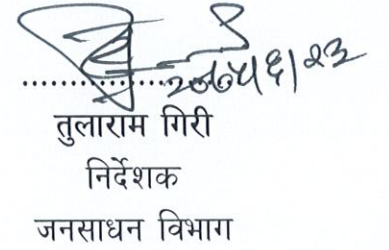 २०७५।६।२३
तुलाराम गिरी
निर्देशक
जनसाधन विभाग